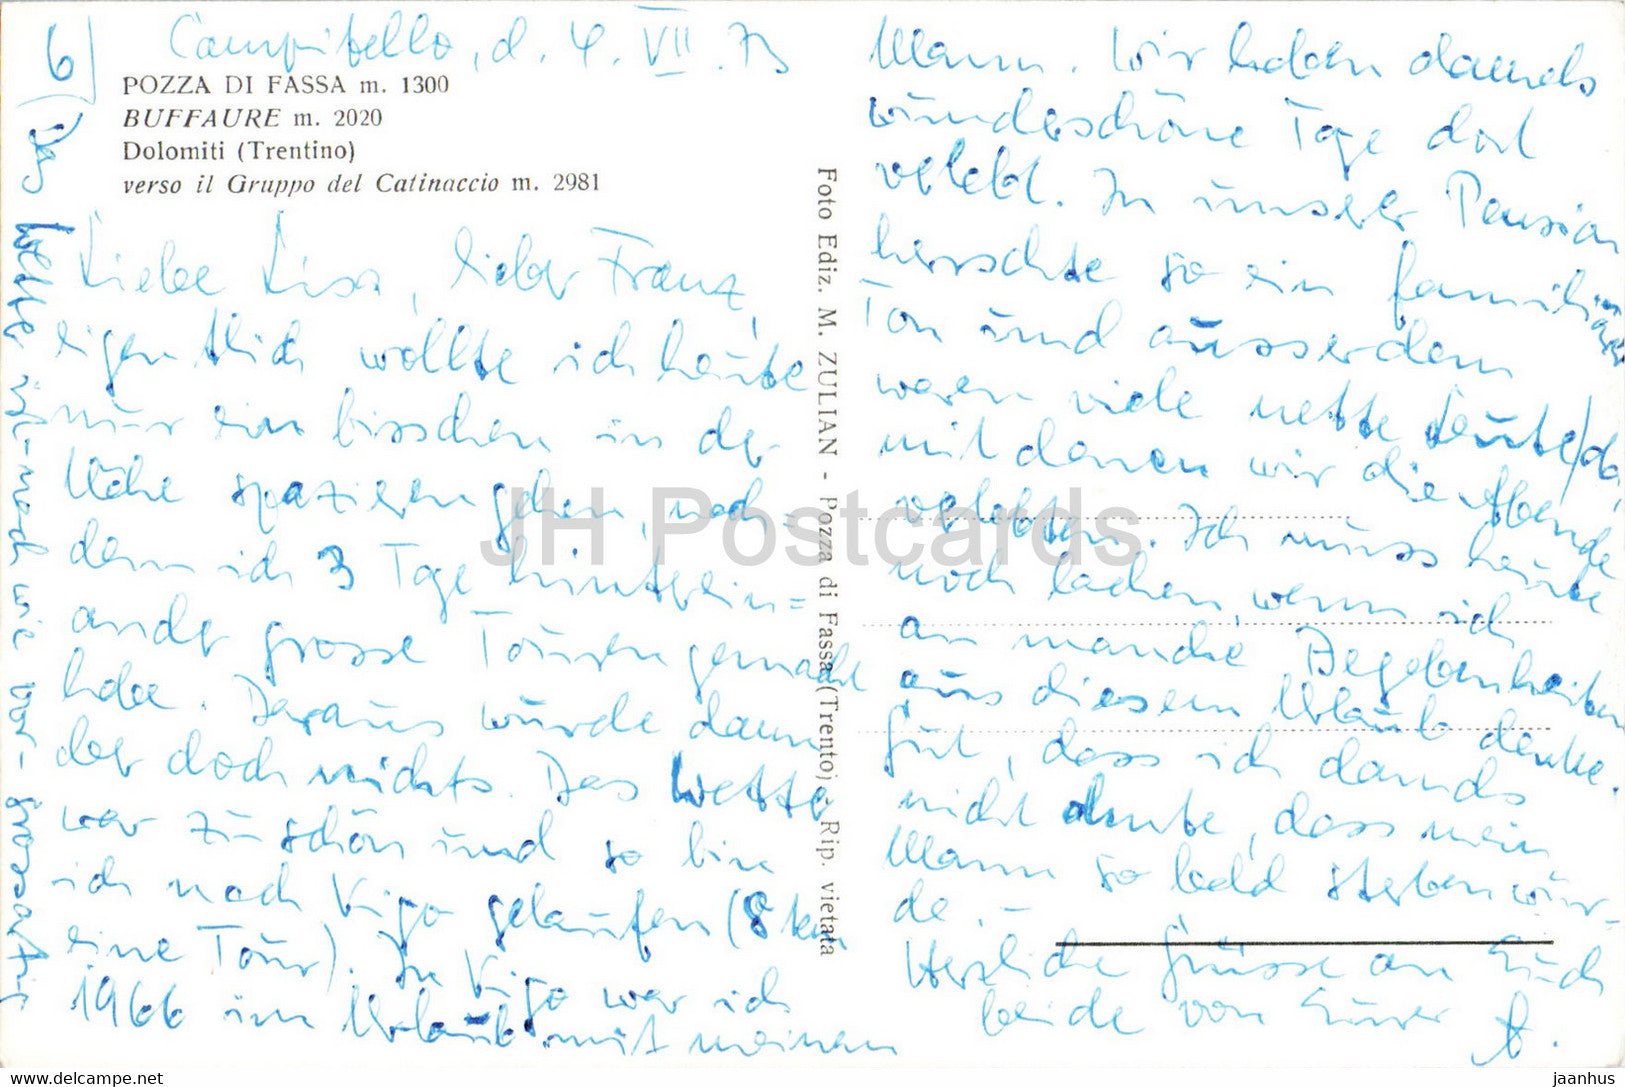 6)
Campitello, d. 4. VII. 73
POZZA DI FASSA m. 1300
BUFFAURE m. 2020
Dolomiti (Trentino)
verso il Gruppo del Catinaccio m. 2981
Liebe Lisa, lieber Franz,
eigentlich wollte ich heute
nur ein bisschen in der
Nähe spazieren gehen, nach=
dem ich 3 Tage hinterein=
ander grosse Touren gemacht
habe. Daraus wurde dann
aber doch nichts. Das Wetter
war zu schön und so bin
ich nach Vigo gelaufen (8 km
eine Tour). In Vigo war ich
1966 im Urlaub mit meinem
Mann. Wir haben damals
wunderschöne Tage dort
verlebt. In unserer Pension
herrschte so ein familiärer
Ton und ausserdem
waren viele nette Leute da,
mit denen wir die Abende
verlebten. Ich muss heute
noch lachen, wenn ich
an manche Begebenheiten
aus diesem Urlaub denke.
Gut, dass ich damals
nicht ahnte, dass mein
Mann so bald sterben wür-
de. -
Herzliche Grüsse an Euch
beide von Eurer
A.
Das Wetter ist nach wie vor grossartig
Foto Ediz. M. ZULIAN - Pozza di Fassa (Trento) - Rip. vietata
JH Postcards
delcampe.net
jaanhus